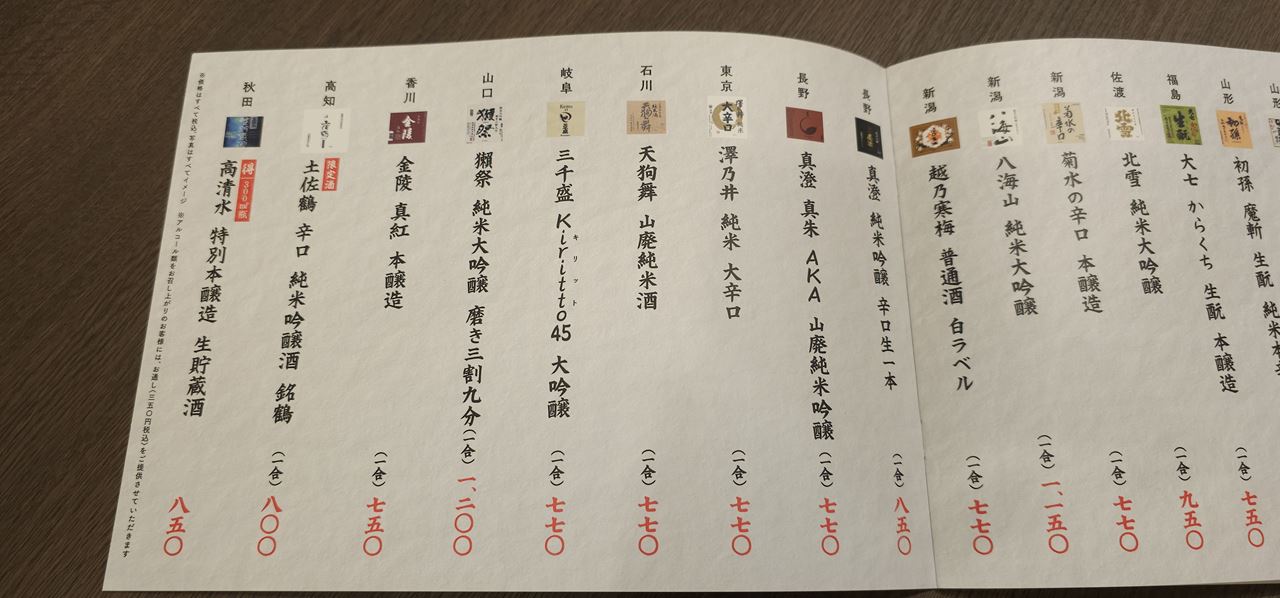 山形
初孫 魔斬 生酛 純米
福島
大七 からくち 生酛 本醸造 (一合) 七五〇
佐渡
北雪 純米大吟醸 (一合) 九五〇
新潟
菊水の辛口 本醸造 (一合) 七七〇
新潟
八海山 純米大吟醸 (一合) 一、一五〇
新潟
越乃寒梅 普通酒 白ラベル (一合) 七七〇
長野
真澄 純米吟醸 辛口生一本 (一合) 八五〇
長野
真澄 真朱 AKA 山廃純米吟醸 (一合) 七七〇
東京
大辛口
澤乃井 純米 大辛口 (一合) 七七〇
石川
天狗舞
天狗舞 山廃純米酒 (一合) 七七〇
岐阜
三千盛 Kiritto45 大吟醸 (一合) 七七〇
キリット
山口
獺祭
獺祭 純米大吟醸 磨き三割九分 (一合) 一、二〇〇
香川
金陵
金陵 真紅 本醸造 (一合) 七五〇
高知
限定酒
土佐鶴 辛口 純米吟醸酒 銘鶴 (一合) 八〇〇
秋田
得 300㎖瓶
高清水 特別本醸造 生貯蔵酒 八五〇
※価格はすべて税込、写真はすべてイメージ ※アルコール類をお召し上がりのお客様には、お通し(三五〇円税込)をご提供させていただきます